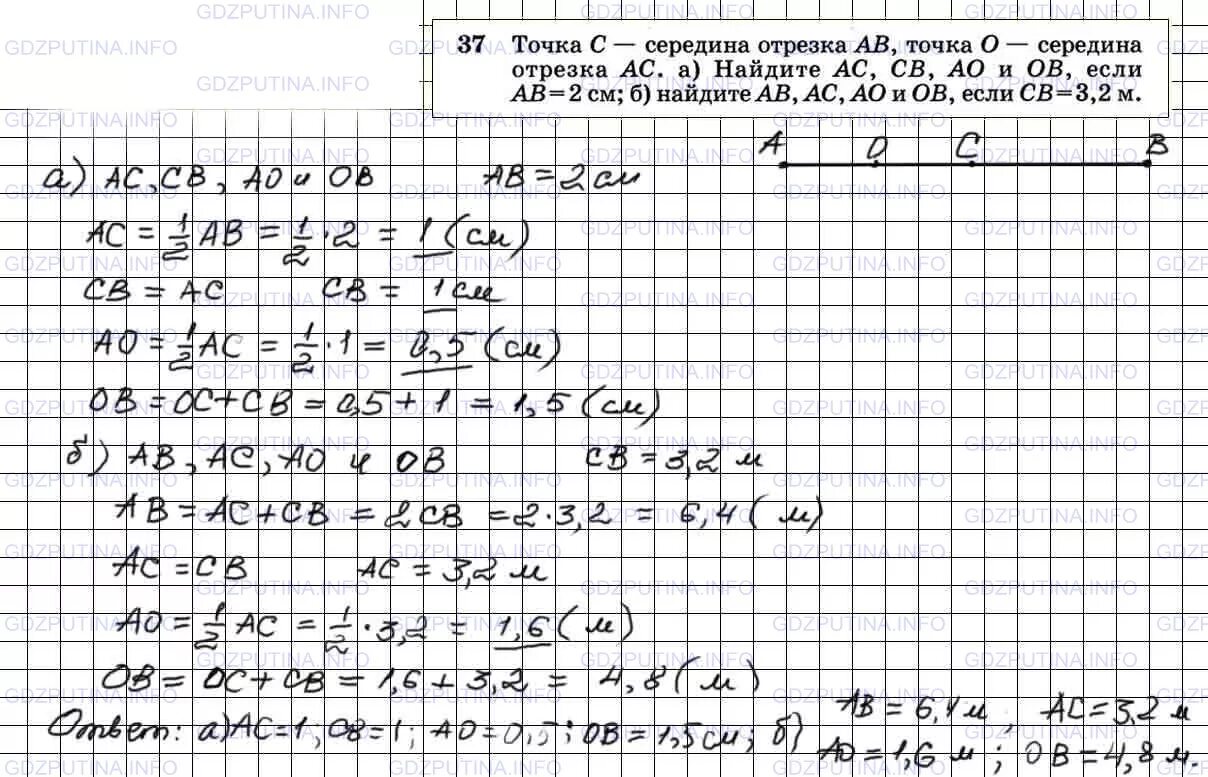 37 Точка C — середина отрезка AB, точка O — середина
отрезка AC. а) Найдите AC, CB, AO и OB, если
AB=2 см; б) найдите AB, AC, AO и OB, если CB=3,2 м.
A O C B
а) AC, CB, AO и OB AB = 2 см
AC = 1/2 AB = 1/2 · 2 = 1 (см)
CB = AC CB = 1 см
AO = 1/2 AC = 1/2 · 1 = 0,5 (см)
OB = OC + CB = 0,5 + 1 = 1,5 (см)
б) AB, AC, AO и OB CB = 3,2 м
AB = AC + CB = 2CB = 2 · 3,2 = 6,4 (м)
AC = CB AC = 3,2 м
AO = 1/2 AC = 1/2 · 3,2 = 1,6 (м)
OB = OC + CB = 1,6 + 3,2 = 4,8 (м)
Ответ: а) AC=1; CB=1; AO=0,5; OB=1,5 см; б) AB = 6,4 м, AC = 3,2 м
AO = 1,6 м; OB = 4,8 м.
GDZPUTINA.INFO